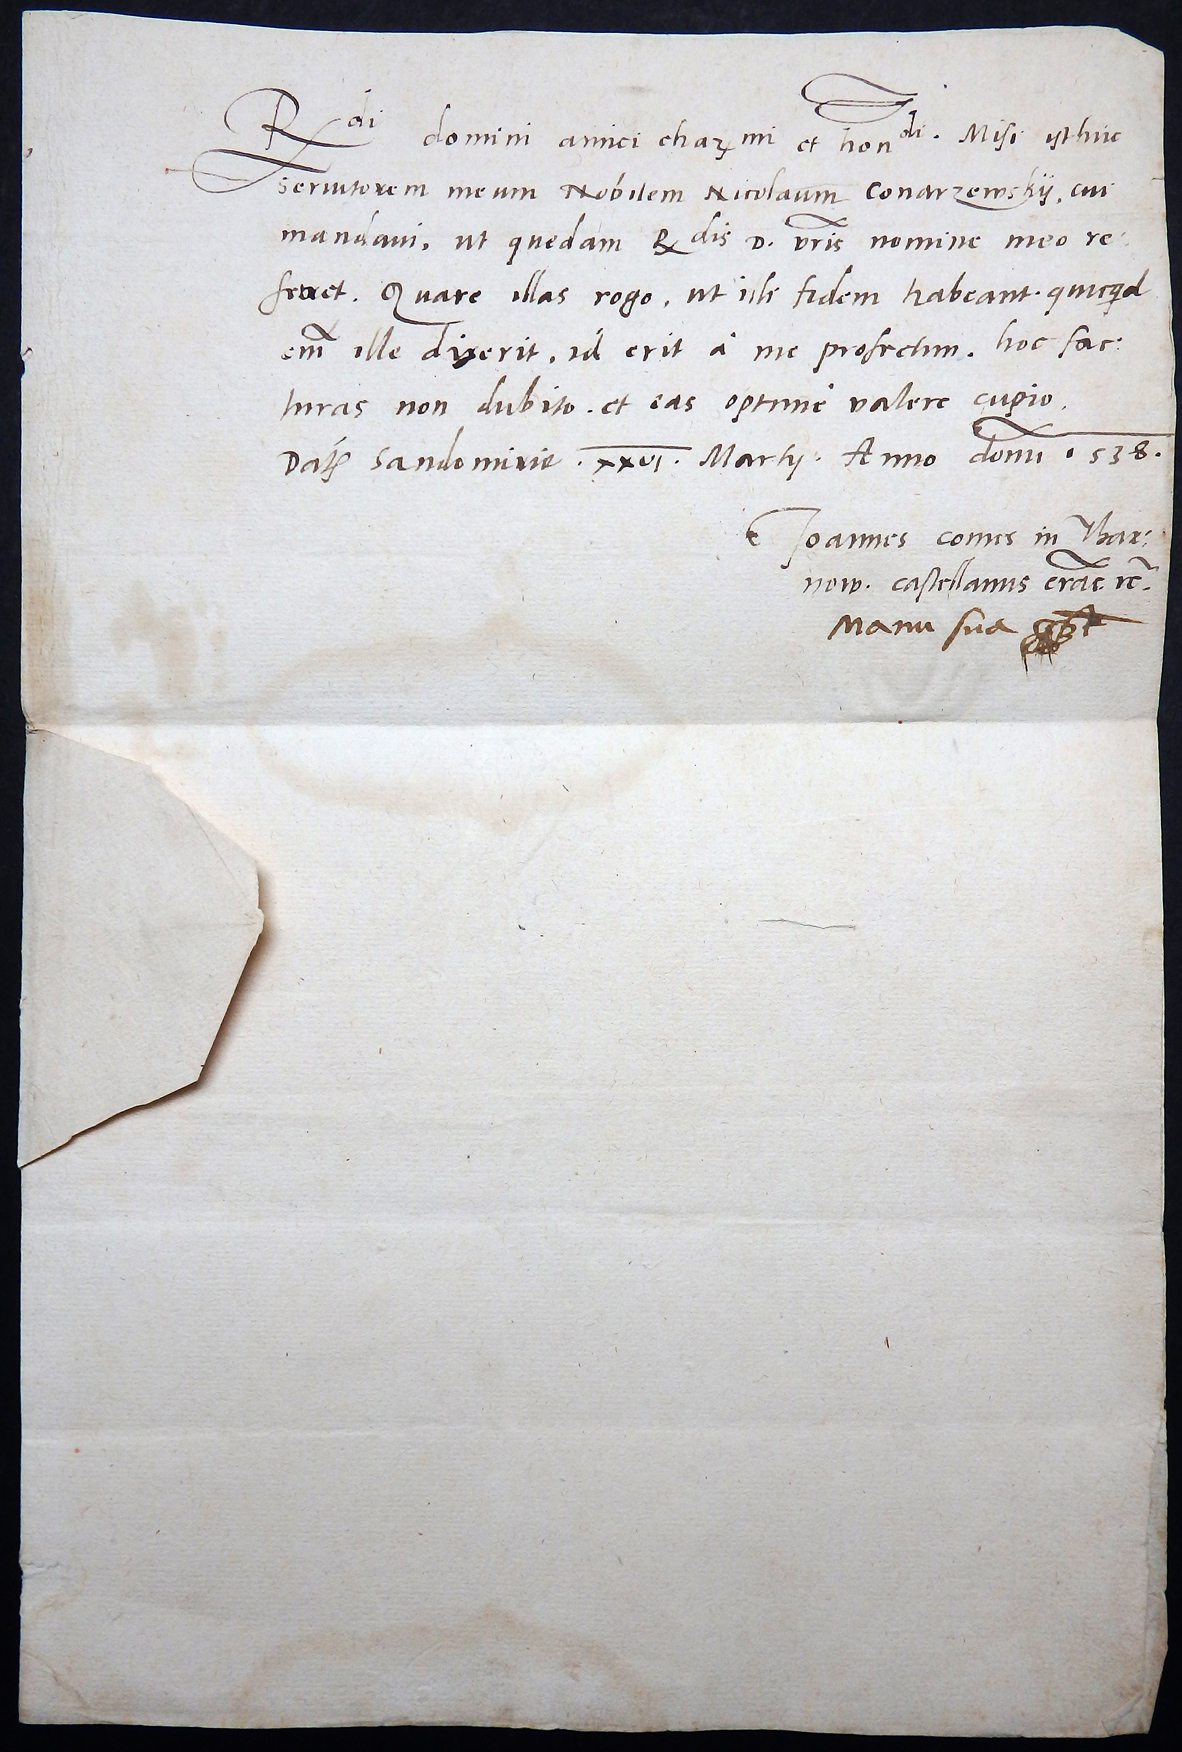 Rdi domini amici charmi et hondi. Misi isthuc
servitorem meum Nobilem Nicolaum Conarzewskij, cui
mandavi, ut quedam Rdis D. vris nomine meo re:
ferret. Quare illas rogo, ut illi fidem habeant. quicqd
em ille dixerit, id erit à me profectum. hoc fac:
turas non dubito. et eas optime valere cupio.
Dat Sandomirie . xxvi. Martij. Anno domi 1538.
Joannes comes in Thar:
now. castellanus crac. rc.
Manu sua sspt